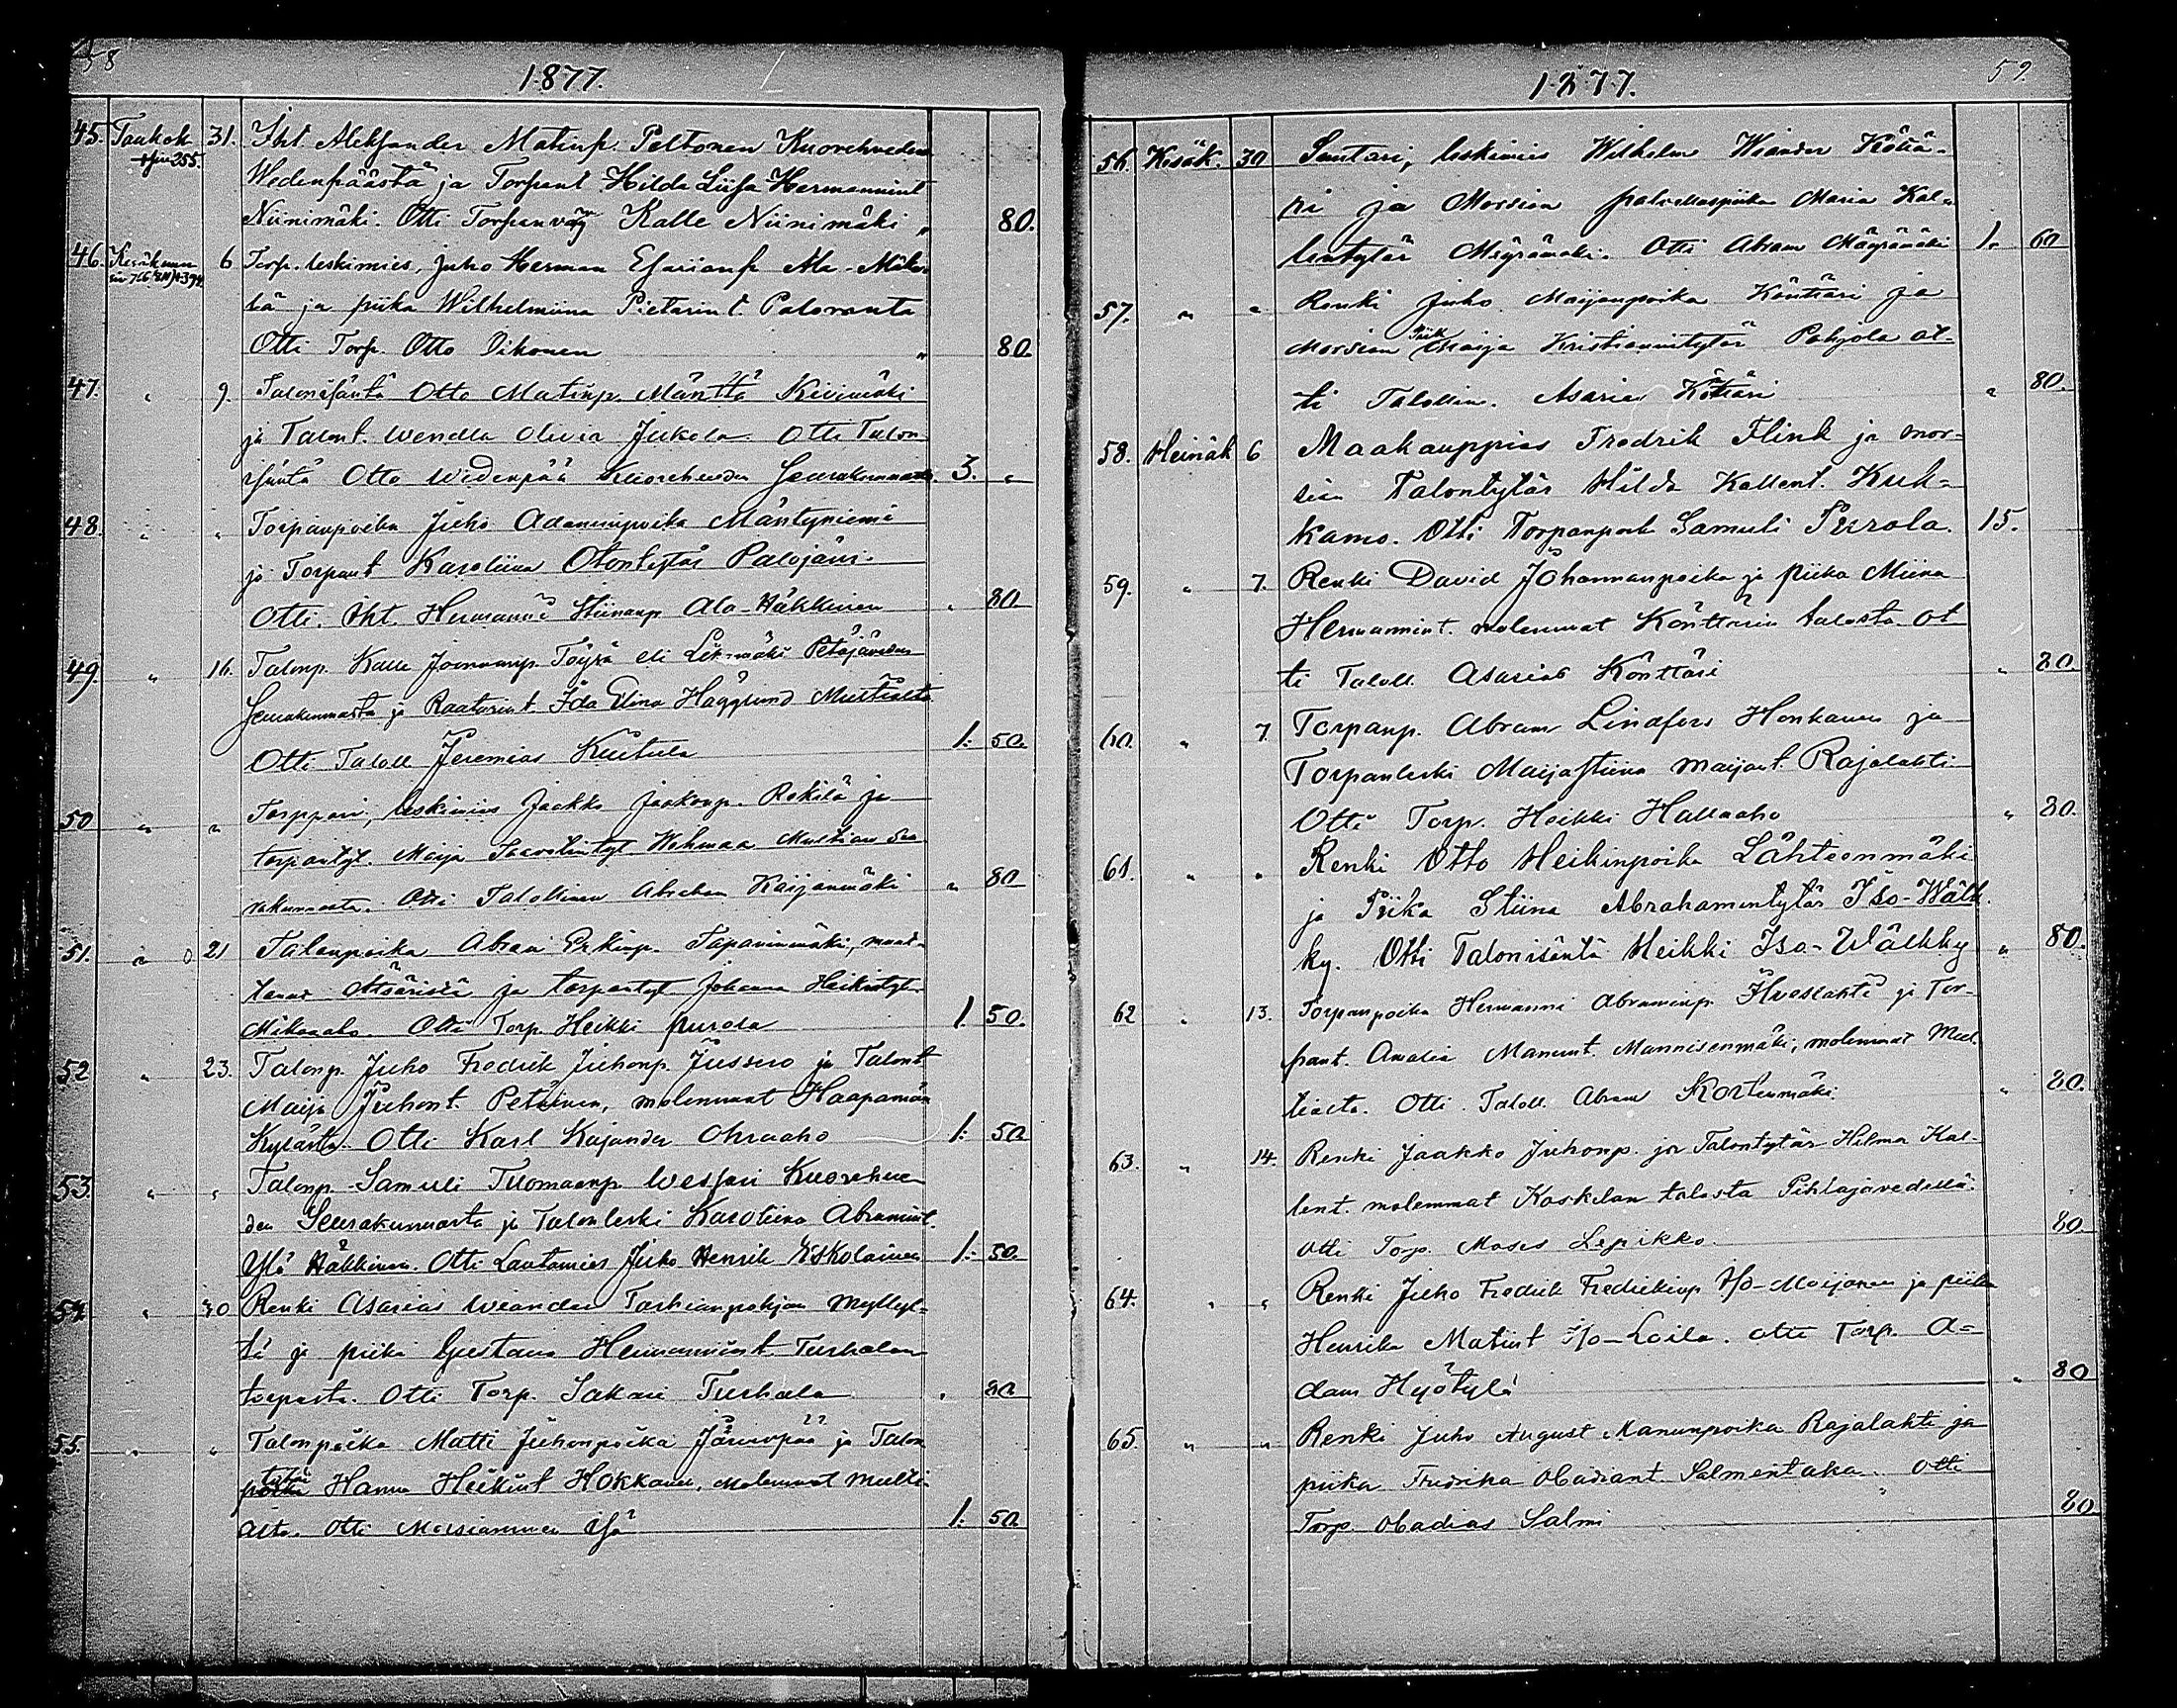 58
1877.
45. Toukok 31. Iht Aleksander Matinp. Peltonen Kuorehveden
siv 255. Wedenpäästä ja Torpant Hilda Liisa Hermannint
Niinimäki. Otti Torpanväg Kalle Niinimäki „ 80.
46. Kesäkuun 6 Torp. leskimies, Juho Herman Esarianp Ala-
tä ja piika Wilhelmiina Pietarint. Paloranta
Otti Torp. Otto Oikonen „ 80.
47. „ 9. Talonisäntä Otto Matinp. Mänttä Kivimäki
ja Talont. Wendla Olivia Jukola. Otti Talon
isäntä Otto Wedenpää Kuorehveden Seurakunnasta. 3. „
48. „ „ Torpanpoika Juho Adaminpoika Mäntyniemi
ja Torpant Karoliina Otontytär Palojärvi.
Otti. Iht. Hermanni Stiinanp Ala-Häkkinen „ 80.
49. „ 16. Talonp. Kalle Joonanp Töysä eli Petäjäveden
Seurakunnasta ja Raatarint Ida Elina Hägglund Multialta
Otti Taloll Jeremias Kuitula 1: 50.
50 „ „ Torppari, leskimies Jaakko Jaakonp. Rekilä ja
torpantyt. Maija Wehmaa Multian Seu
rakunnasta. Otti Talollinen Abraham Kaijanmäki „ 80
51. „ 21 Talonpoika Abram Erkinp. Tapaninmäki, muut-
tanut Ätsäristä ja torpantyt Johanna Heikintyt.
Mikanaho. Otti Torp Heikki Purola 1. 50.
52 „ 23. Talonp. Juho Fredrik Juhonp. Jussero ja Talont
Maija Juhont. Petäinen, molemmat Haapamän
Kylästä. Otti Karl Kajander Ohraaho 1: 50
53. „ „ Talonp. Samuli Tuomaanp Wessari Kuorehve
den Seurakunnasta ja Talonleski Karoliina Abramint.
Ylä Häkkinen. Otti Lautamies Juho Henrik Eskolainen 1: 50.
54. „ 30 Renki Asarias Wiander Tarhianpohjan Myllyl-
tä ja piika Gustava Hermannint Turhalan
torpasta. Otti Torp. Sakari Turhala „ 80
55. „ „ Talonpoika Matti Juhonpoika Järvenpää ja Talon
tytär Hanna Heikint Hokkanen, molemmat Multi-
alta. Otti Morsiammen Isä 1: 50
59
1877.
56. Kesäk. 30 Suutari, leskimies Wilhelm Wiander
ri ja Morsian palvelluspiika Maria Kal-
lentytär Mäyrämäki. Otti Abram Mäyrämäki 1. 60
57. „ „ Renki Juho Maijanpoika Könttäri ja
Piik
Morsian Maija Kristianintytär Pohjola ot-
ti Talollin. Asarias Könttäri „ 80.
58. Heinäk 6 Maakauppias Fredrik Flink ja mor-
sian Talontytär Hilda Kallent. Kuk-
kamo. Otti Torpanpoik Samuli Purola. 15.
59. „ 7. Renki David Johannanpoika ja piika Miina
Hermannint. molemmat Könttärin talosta ot
ti Taloll Asarias Könttäri „ 80.
60. „ 7 Torpanp. Abram Linafors Honkanen ja
Torpanleski Maijastiina Maijant. Rajalahti
Otti Torp. Heikki Hallaaho „ 80.
61. „ „ Renki Otto Heikinpoika Lähteenmäki
ja Piika Stiina Abrahamintytär Iso-Wälk
ky. Otti Talonisäntä Heikki Iso-Wälkky „ 80.
62 „ 13. Torpanpoika Hermanni Abraminp. Huoslahti ja Tor-
pant. Amalia Manunt. Mannisenmäki, molemmat Mul-
tialta. Otti. Taloll. Abram Kortenmäki „ 80.
63. „ 14. Renki Jaakko Juhonp. ja Talontytär Hilma Kal-
lent. molemmat Koskelan talosta Pihlajavedellä.
Otti Torp. Moses Lepikko. 80.
64. „ „ Renki Juho Fredrik Fredrikinp Iso-Maijanen ja piika
Henrika Matint Iso-Loila. Otti Torp. A=
dam Hyötylä „ 80
65. „ „ Renki Juho August Manunpoika Rajalahti ja
piika Fredrika Obadiant. Salmentaka. Otti
Torp. Obadias Salmi „ 80.